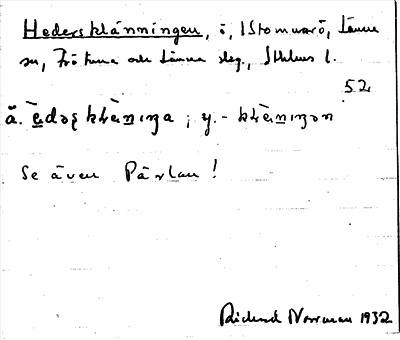 Hedersklänningen, ö, i Stomnarö, Länna
sn, Frötuna och Länna slg., Sthlms l.
52
ä. èdəʂ klὲniŋa ; y. - klὲniŋən
Se även Pärlan !
Rickard Norrman 1932